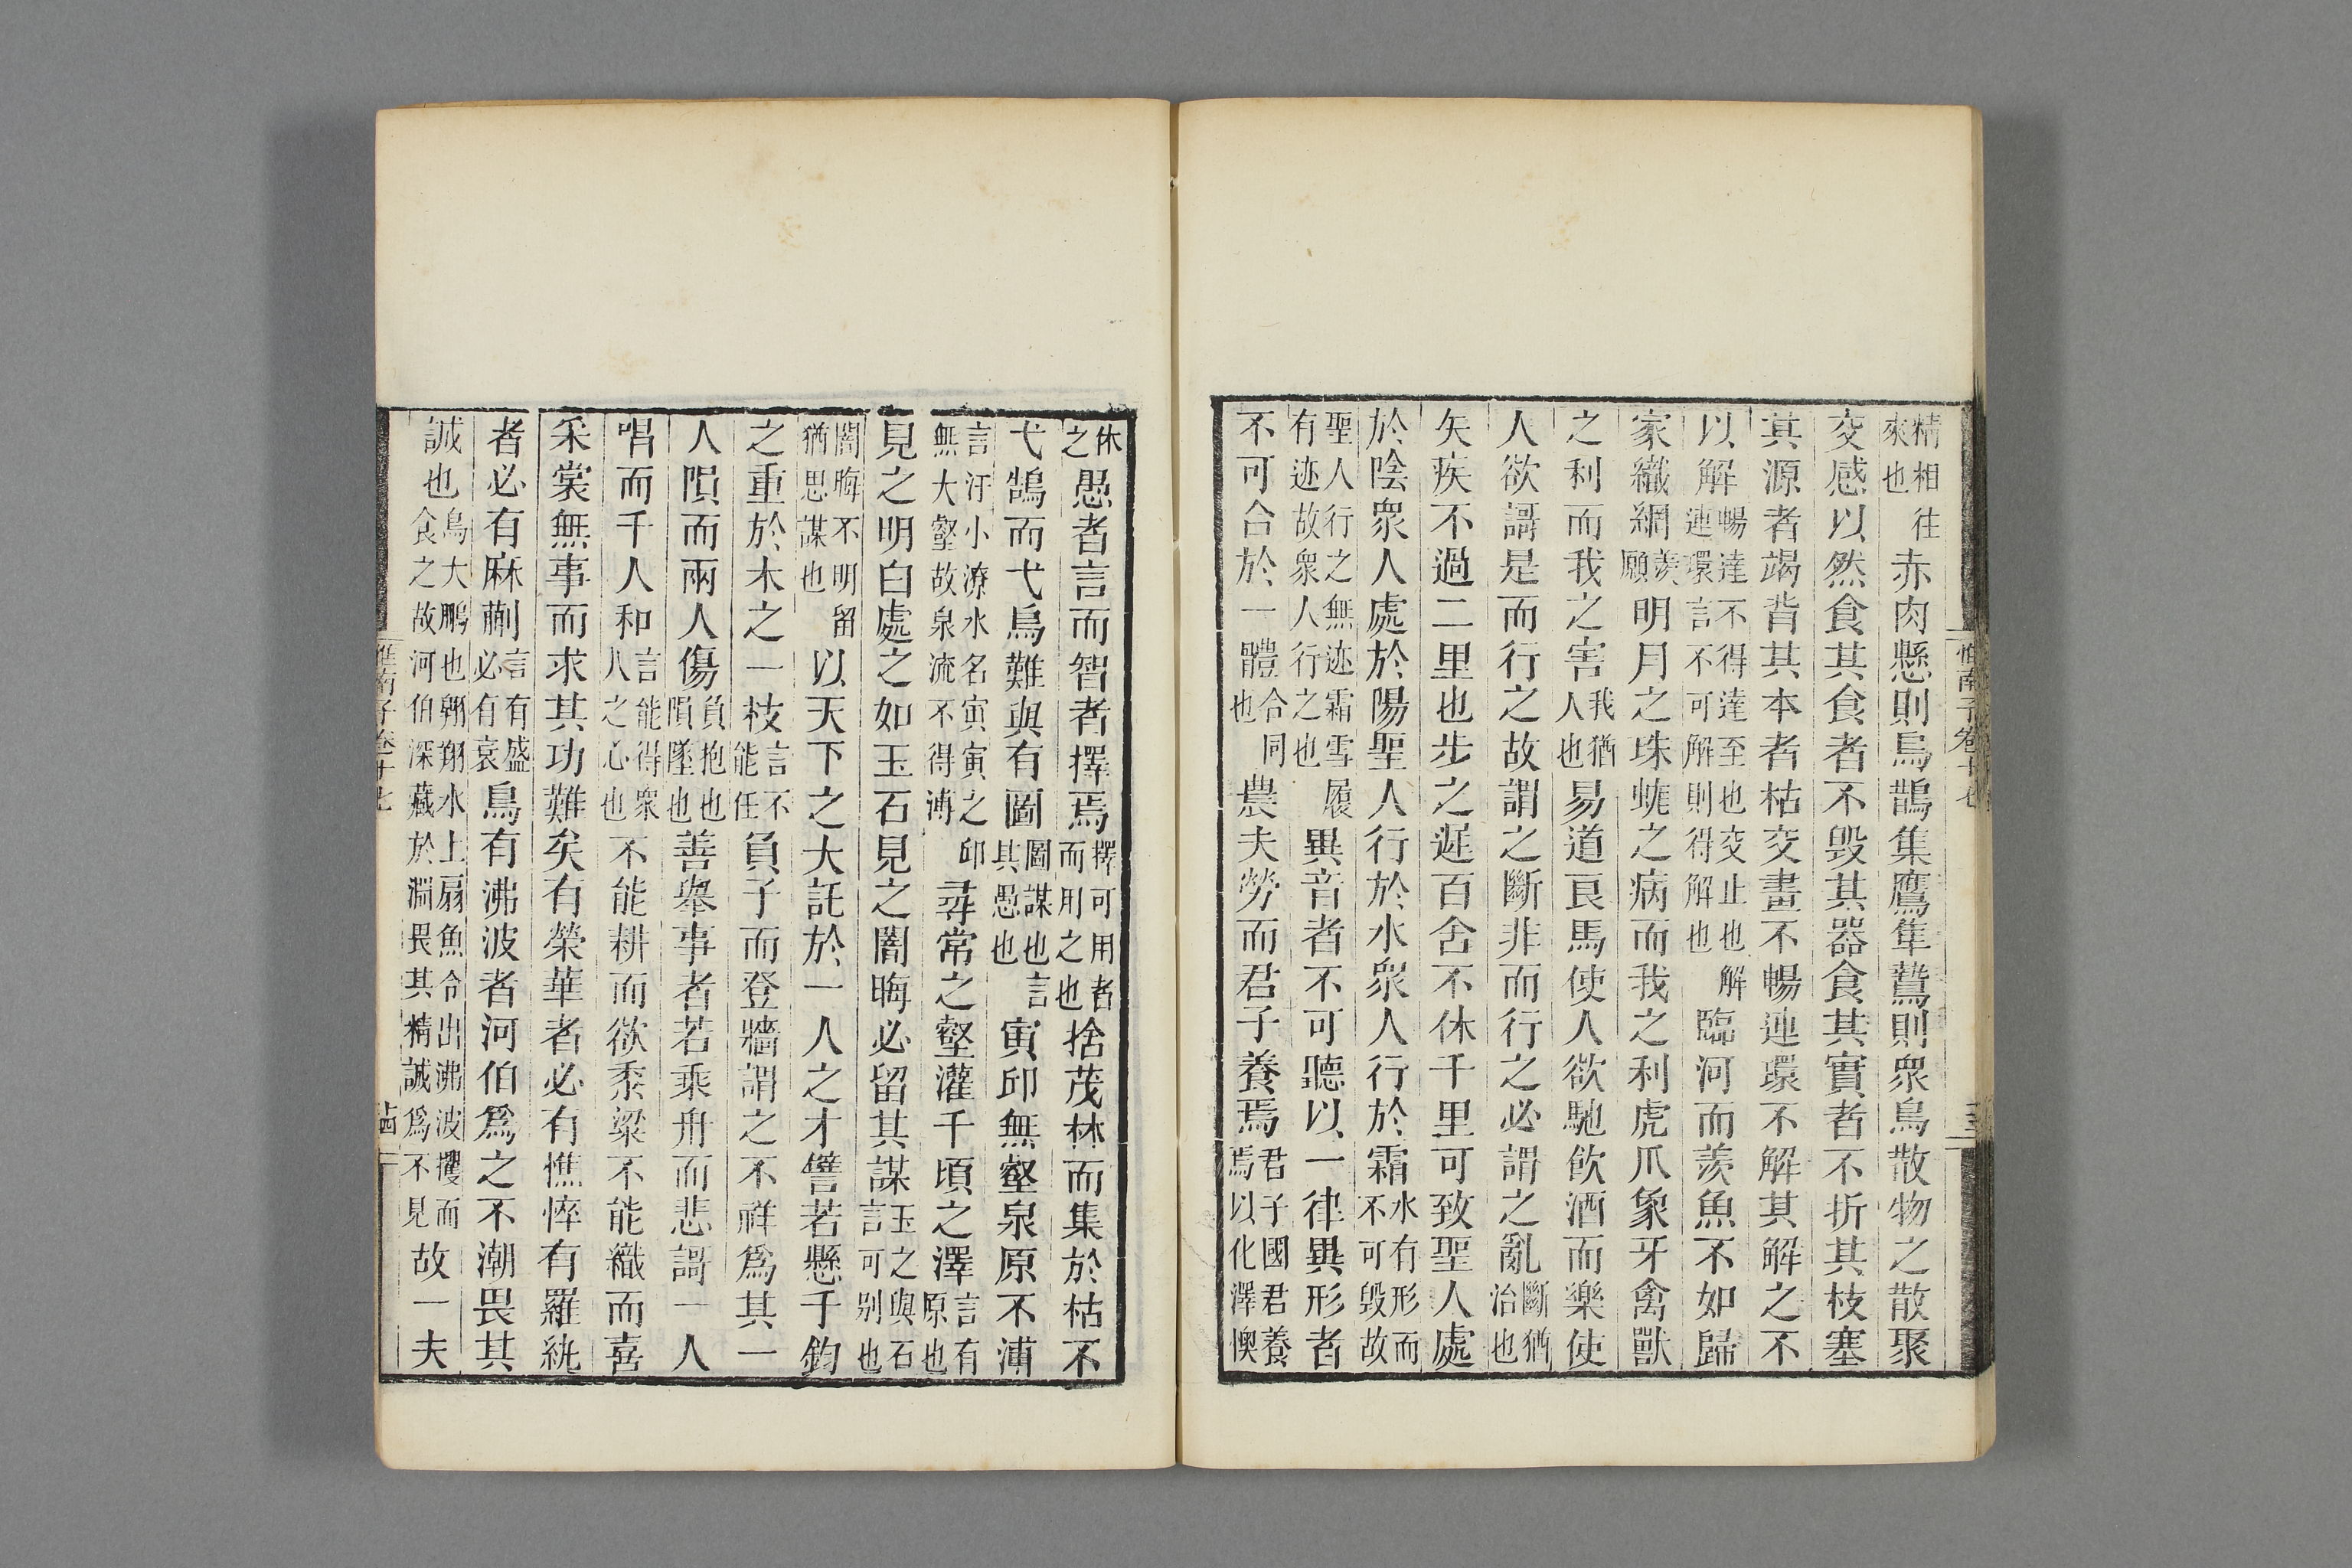 淮南子卷十七
十三
精相往來也赤肉懸則烏鵲集鷹隼鷙則衆鳥散物之散聚
交感以然食其食者不毀其器食其實者不折其枝塞
其源者竭背其本者枯交畫不暢連環不解其解之不
以解暢達不得達至也交止也解連環言不可解則得解也臨河而羨魚不如歸
家織網羨願明月之珠蛖之病而我之利虎爪象牙禽獸
之利而我之害我猶人也易道良馬使人欲馳飲酒而樂使
人欲謌是而行之故謂之斷非而行之必謂之亂斷猶治也
矢疾不過二里也步之遲百舍不休千里可致聖人處
於陰衆人處於陽聖人行於水衆人行於霜水有形而不可毀故
聖人行之無迹霜雪履有迹故衆人行之也異音者不可聽以一律異形者
不可合於一體合同也農夫勞而君子養焉君子國君養焉以化澤懊
休之愚者言而智者擇焉擇可用者而用之也捨茂林而集於枯不
弋鵠而弋烏難與有圖圖謀也言其愚也寅邱無壑泉原不溥
言汙小潦水名寅寅之邱無大壑故泉流不得溥尋常之壑灌千頃之澤言有原也
見之明白處之如玉石見之闇晦必留其謀玉之與石言可别也
闇晦不明留猶思謀也以天下之大託於一人之才譬若懸千鈞
之重於木之一枝言不能任負子而登牆謂之不祥爲其一
人隕而兩人傷負抱也隕墜也善舉事者若乘舟而悲謌一人
唱而千人和言能得衆人之心也不能耕而欲黍粱不能織而喜
采裳無事而求其功難矣有榮華者必有憔悴有羅紈
者必有麻蒯言有盛必有衰鳥有沸波者河伯爲之不潮畏其
誠也鳥大鵬也翱翔水上扇魚令出沸波攫而食之故河伯深藏於淵畏其精誠爲不見故一夫
淮南子卷十七
十四